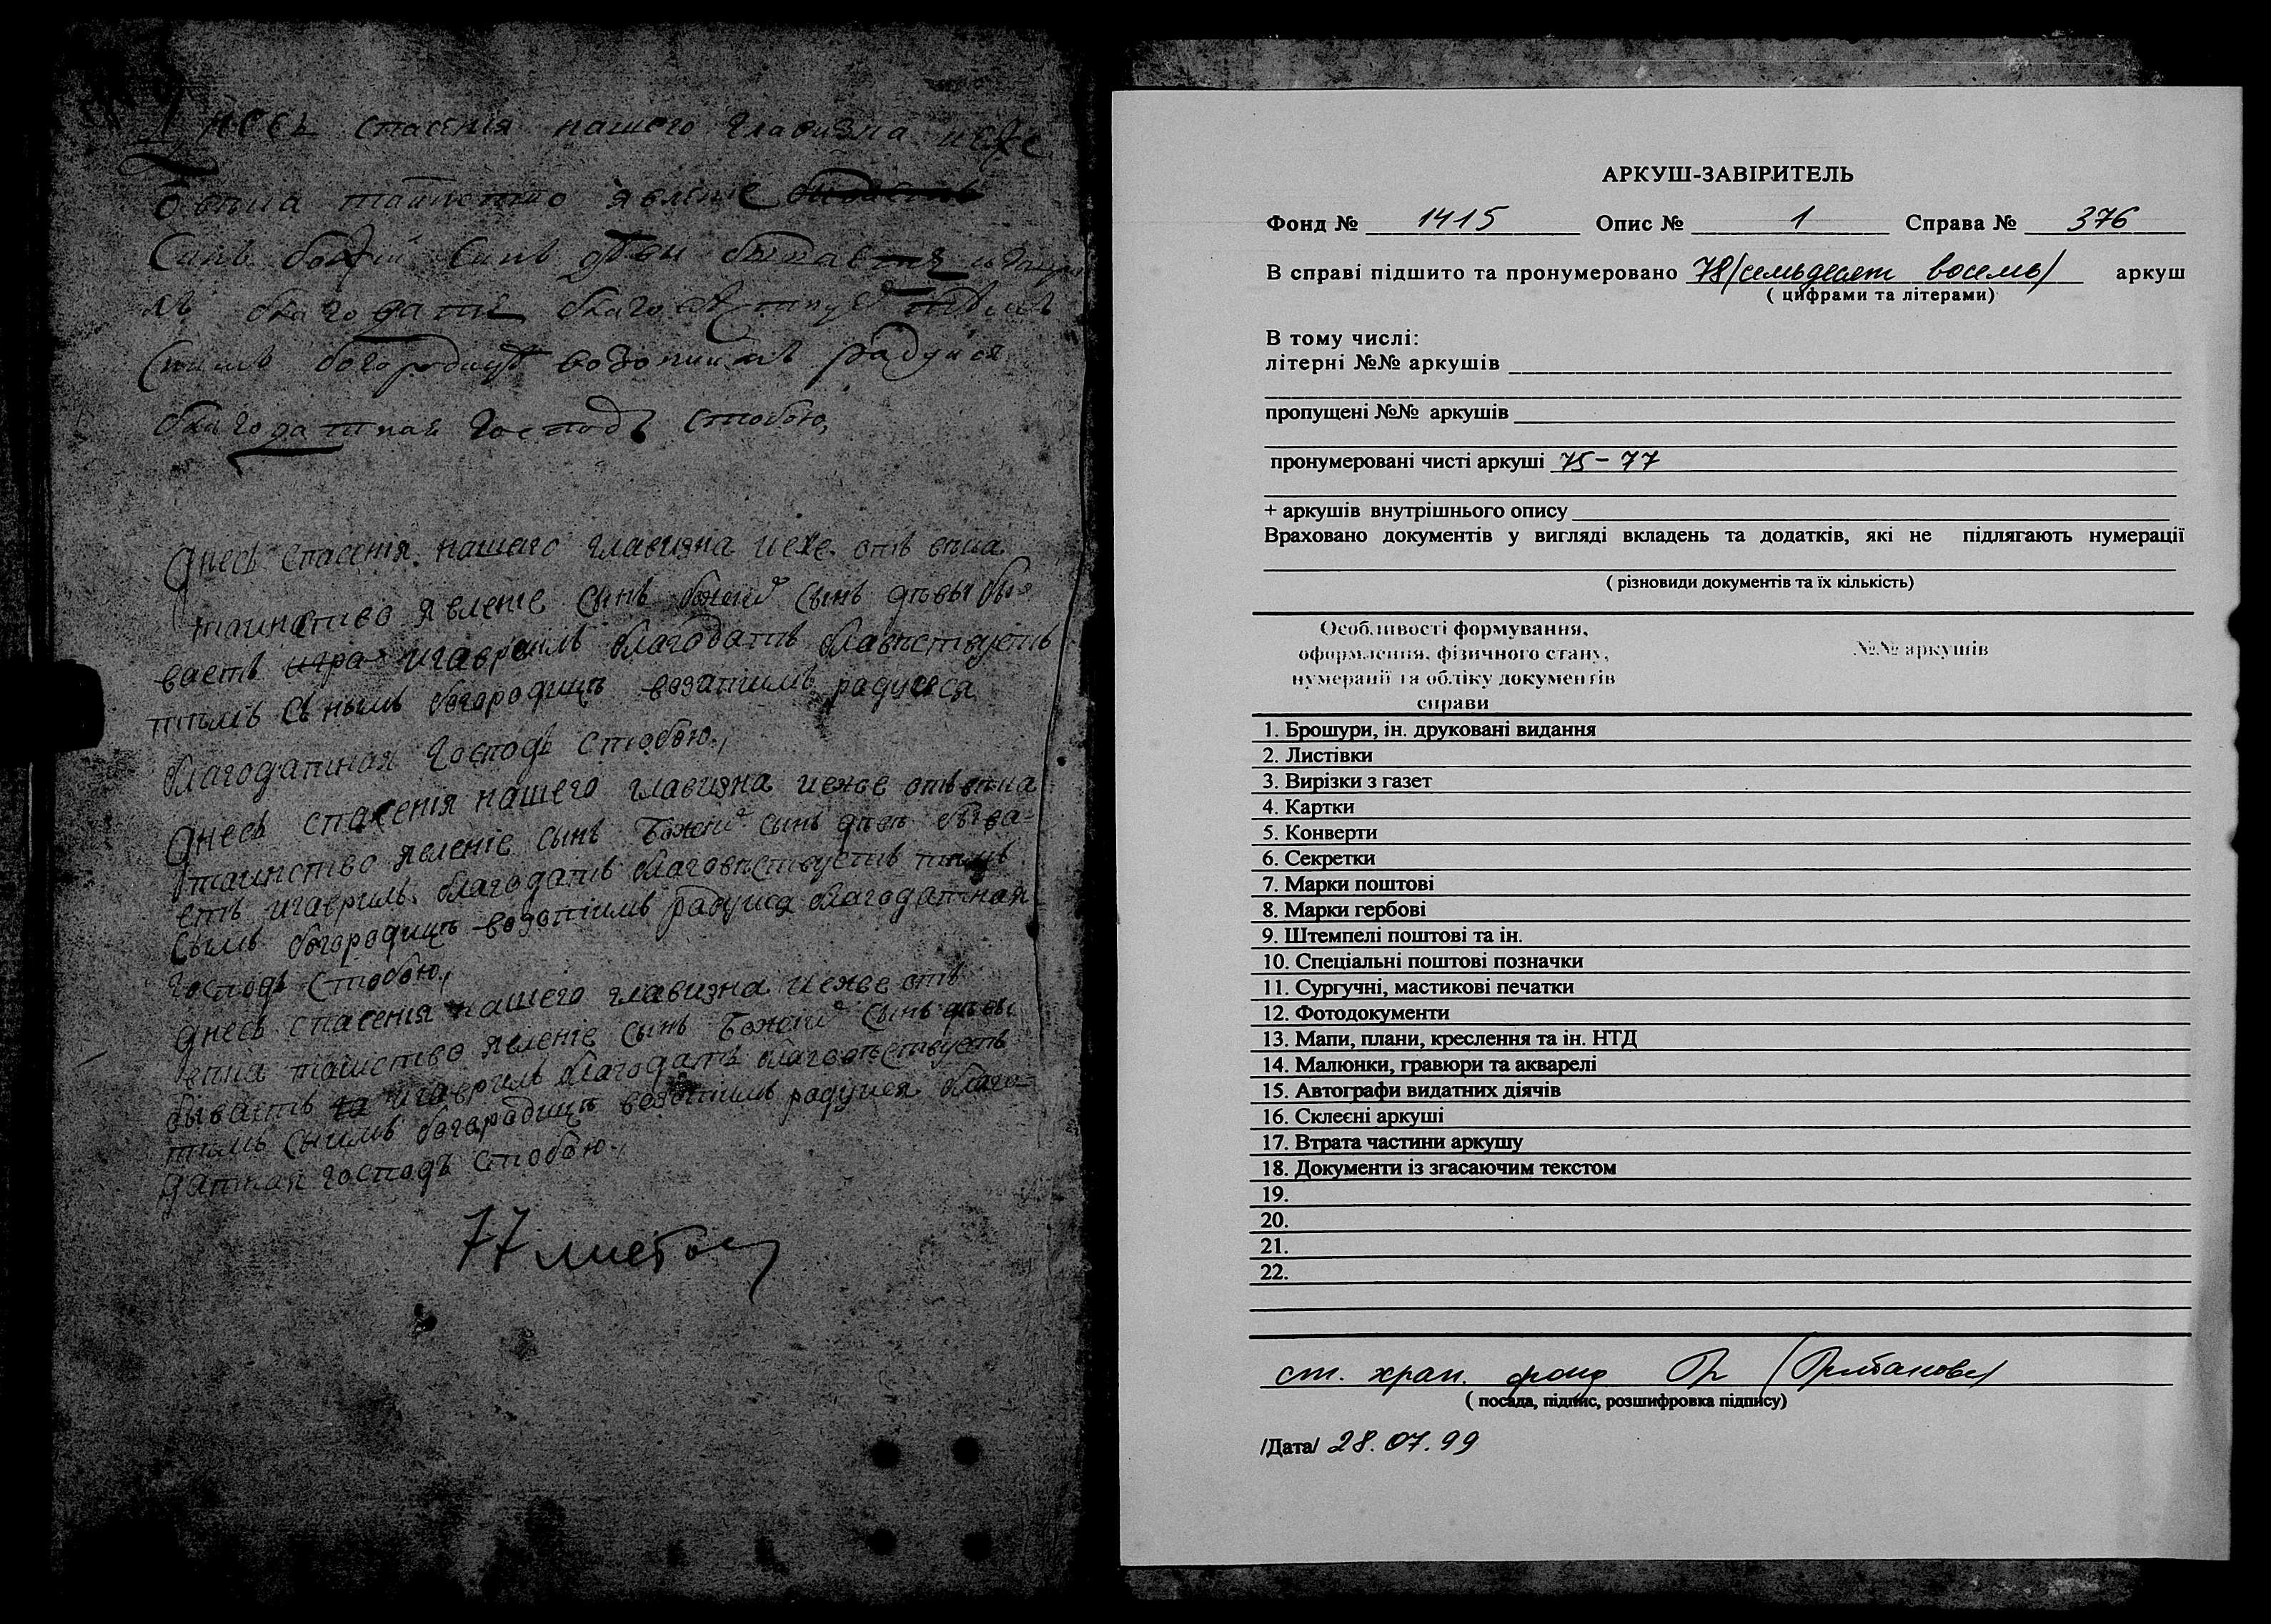 Днесь спасенія нашего главизна иеже
Сынъ божій Сынъ
благодать
богородицѣ возопиимъ радуися
благодатная Господь стобою,
Днесь спасенія нашего главизна иеже отъ вѣка
таинство явленіе сынъ божий сынъ дѣвы бы-
ваетъ игра игавриилъ благодать
богородицѣ возапіимъ радуися
благодатная Господь стобою,,
Днесь спасенія нашего главизна иеже отвѣка
таинство явленіе сынъ Божий сынъ дѣвы быва-
етъ игавриль благодать благовѣствуетъ тѣмъ
богородицѣ возопіимъ радуися благодатная
Господь стобою,,
днесь спасенія нашего главизна иеже отъ
вѣка таинство явленіе сынъ Божий Сынъ дѣвы
бываетъ га игавриль благодать благовѣствуетъ
богородицѣ возопіимъ радуися благо-
датная господь стобою.,
77 листов
АРКУШ-ЗАВІРИТЕЛЬ
Фонд № 1415 Опис № 1 Справа № 376
В справі підшито та пронумеровано 78/семьдесят восемь/ аркуш
( цифрами та літерами)
В тому числі:
літерні №№ аркушів
пропущені №№ аркушів
пронумеровані чисті аркуші 75-77
+ аркушів внутрішнього опису
Враховано документів у вигляді вкладень та додатків, які не підлягають нумерації
( різновиди документів та їх кількість)
Особливості формування,
оформлення, фізичного стану, №№ аркушів
нумерації та обліку документів
справи
1. Брошури, ін. друковані видання
2. Листівки
3. Вирізки з газет
4. Картки
5. Конверти
6. Секретки
7. Марки поштові
8. Марки гербові
9. Штемпелі поштові та ін.
10. Спеціальні поштові позначки
11. Сургучні, мастикові печатки
12. Фотодокументи
13. Мапи, плани, креслення та ін. НТД
14. Малюнки, гравюри та акварелі
15. Автографи видатних діячів
16. Склеєні аркуші
17. Втрата частини аркушу
18. Документи із згасаючим текстом
19.
20.
21.
22.
ст. хран. фонд
( посада, підпис, розшифровка підпису)
/Дата/ 28.07.99